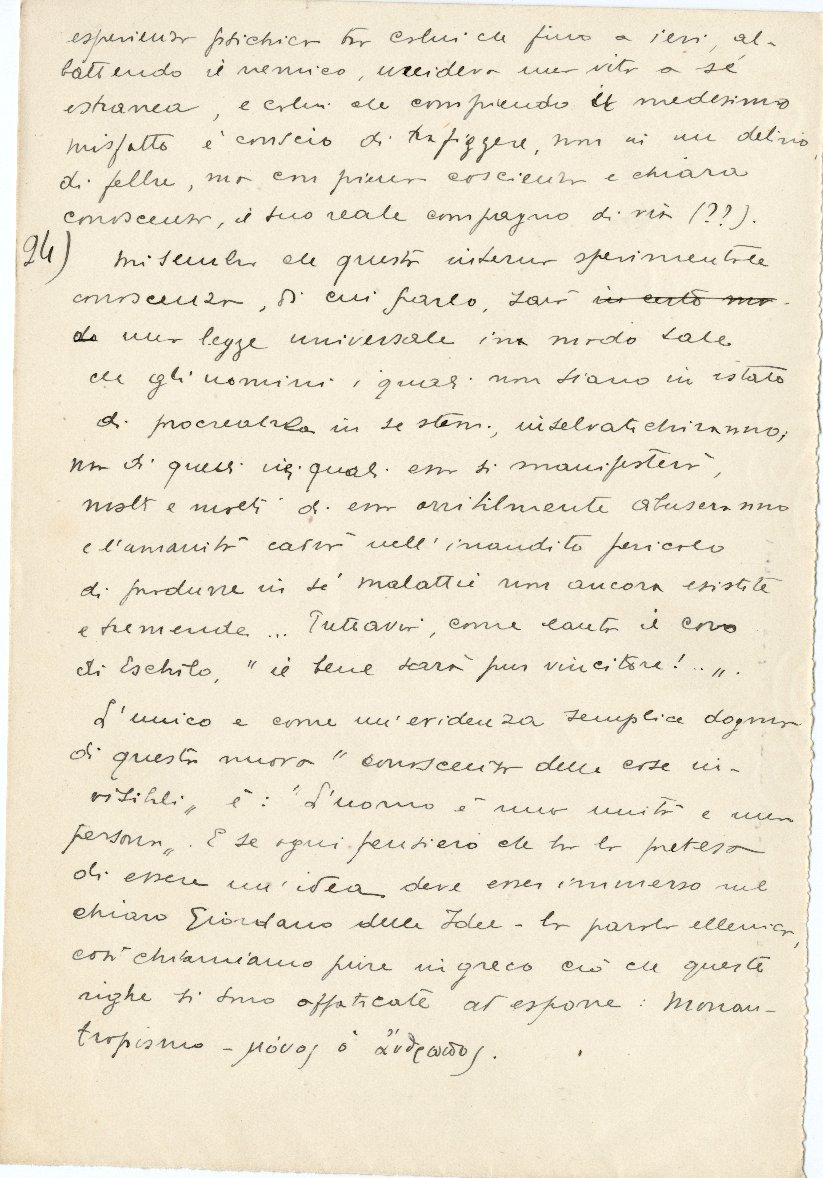 esperienza psichica tra colui che fino a ieri, ab-
battendo il nemico, uccideva una vita a sé
estranea, e colui che compiendo il medesimo
misfatto è conscio di trafiggere, non in un delirio,
di febbre, ma con piena coscienza e chiara
conoscenza, il suo reale compagno di vita (??).
24) Mi sembra che questa interna sperimentale
conoscenza, di cui parlo, sarà in certo mo-
do una legge universale in modo tale
che gli uomini i quali non siano in istato
di procrearla in se stessi, inselvatichiranno;
ma di quelli nei quali essa si manifesterà,
molti e molti di essa orribilmente abuseranno
e l'umanità cadrà nell'inaudito pericolo
di produrre in sé malattie non ancora esistite
e tremende... Tuttavia, come canta il coro
di Eschilo, "il bene sarà pur vincitore!..".
L'unico e come un'evidenza semplice dogma
di questa nuova "conoscenza delle cose in-
visibili" è: "L'uomo è una unità e una
persona". E se ogni pensiero che ha la pretesa
di essere un'idea deve esser immerso nel
chiaro Giordano delle Idee - la parola ellenica,
così chiamiamo pure in greco ciò che queste
righe si sono affaticate ad esporre: Monan-
tropismo - μόνος ὁ ἄνθρωπος.